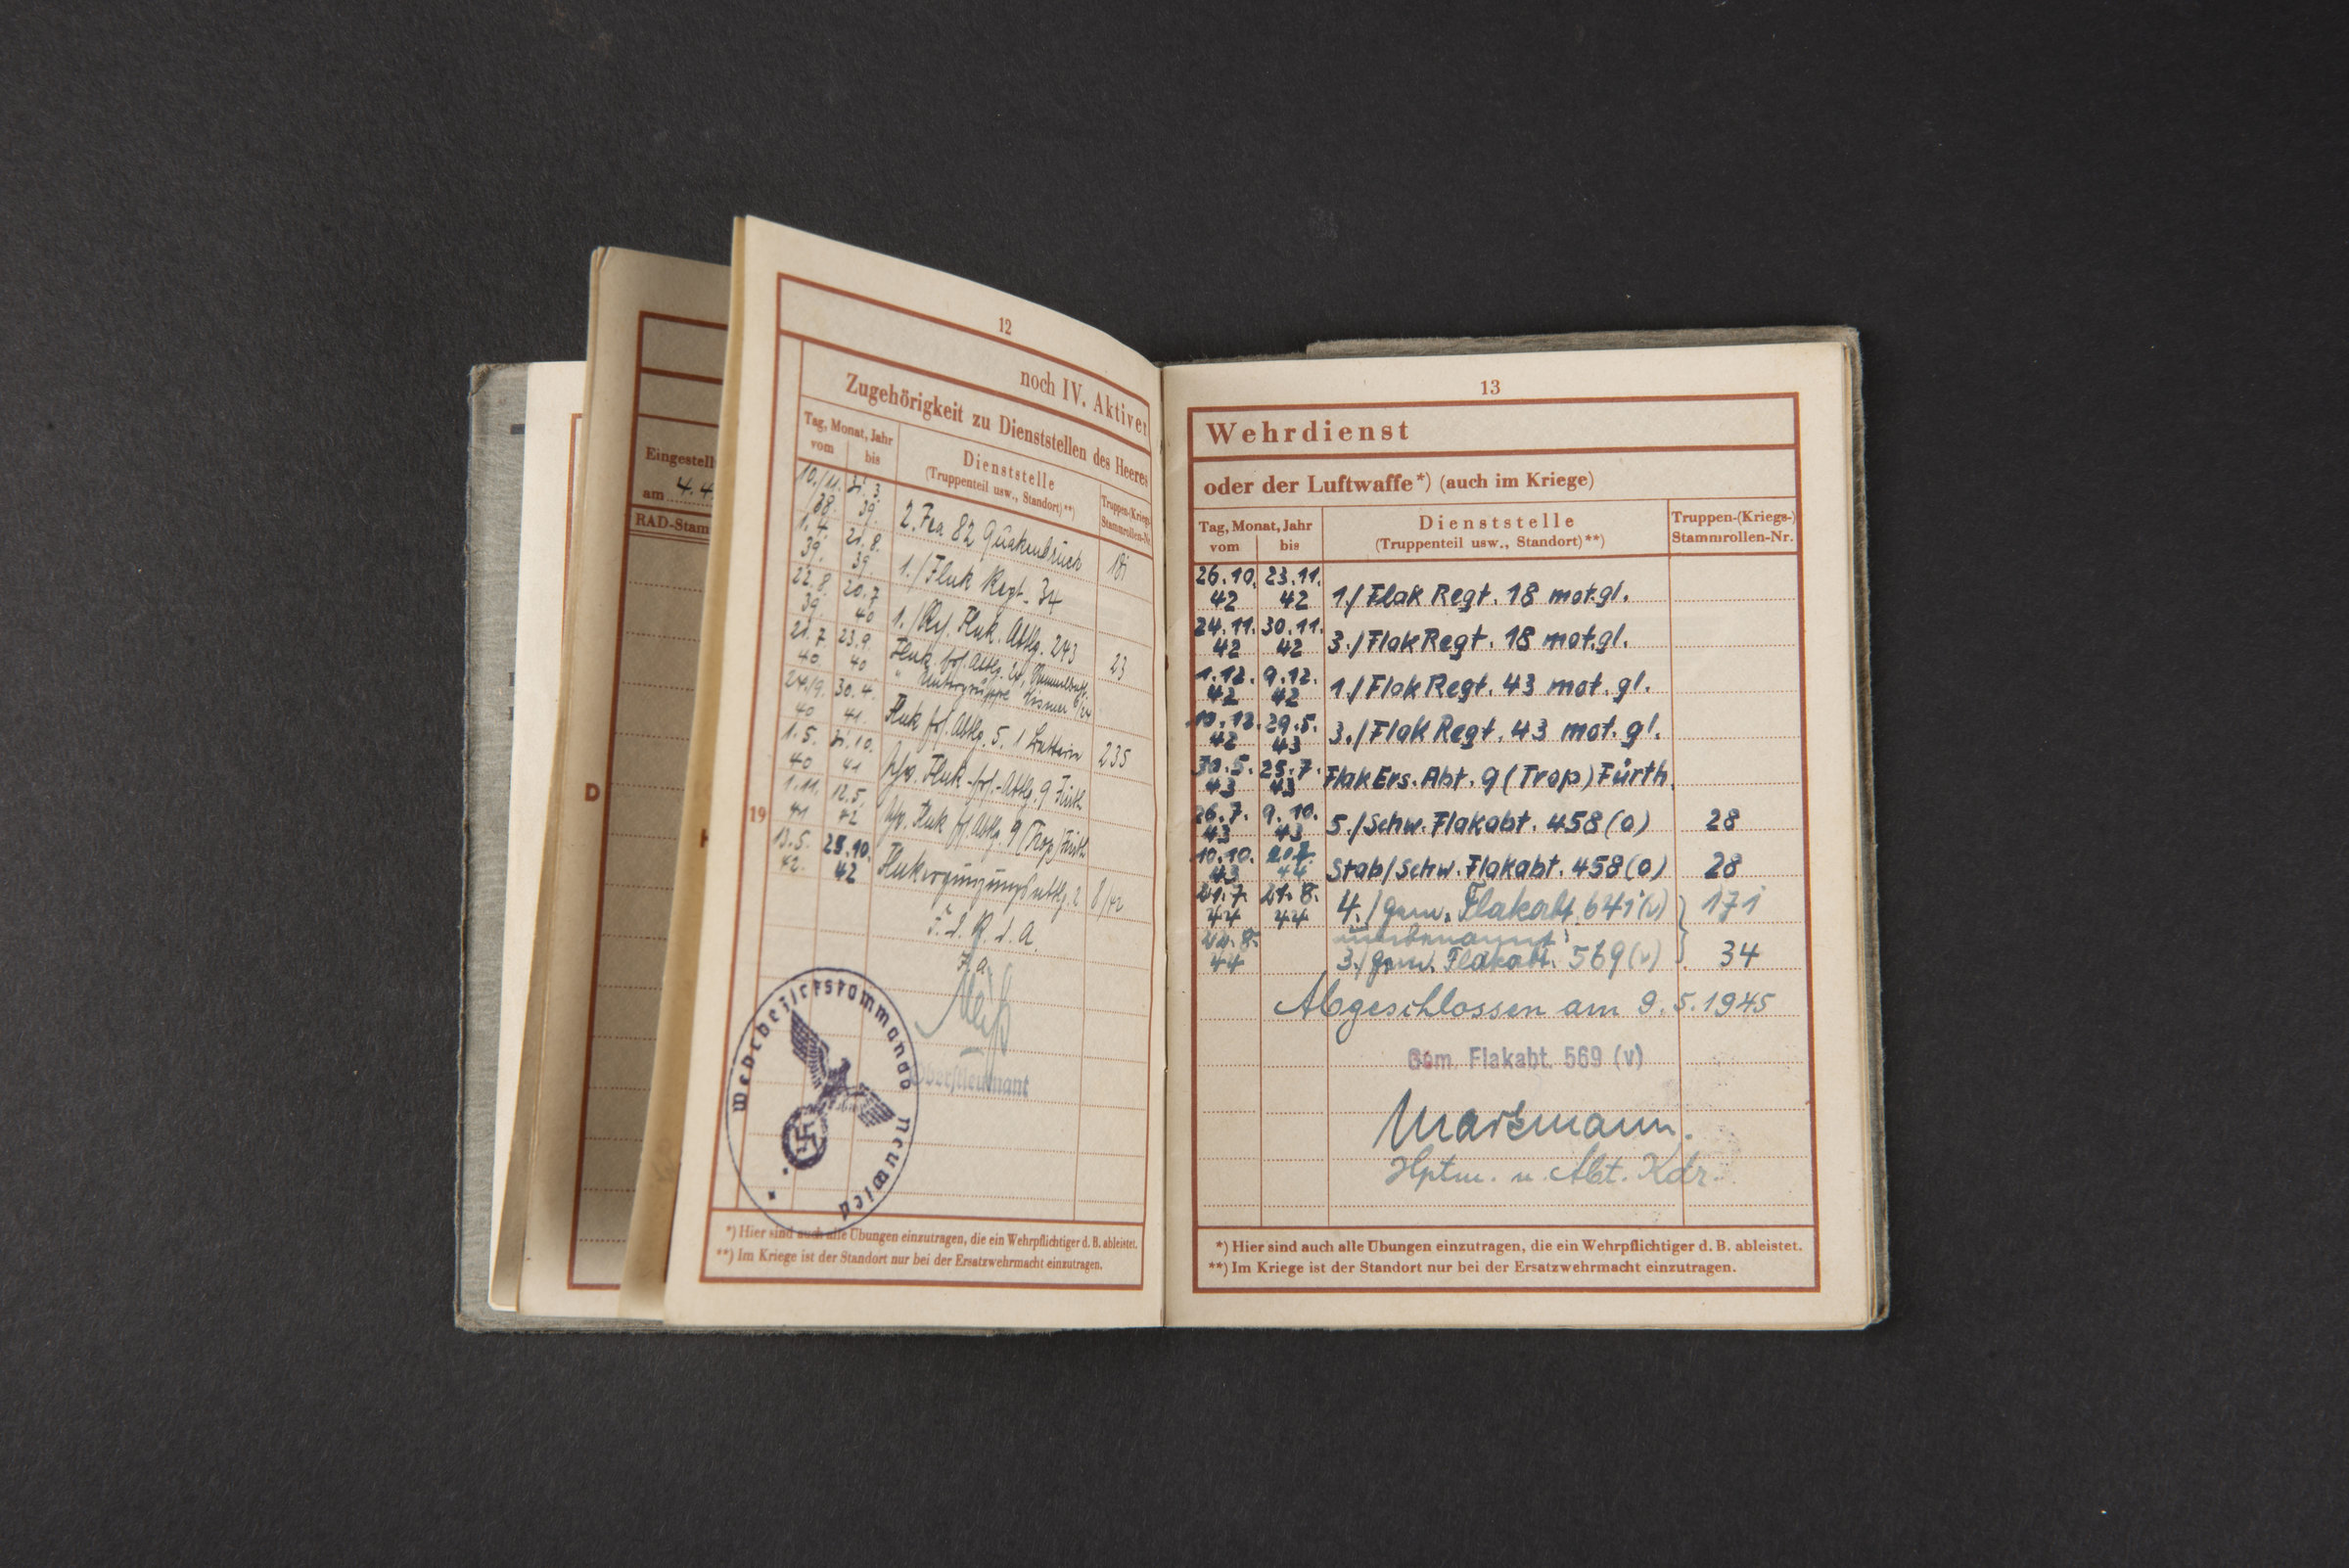 Eingestell
am 4.4
RAD-Stam
D
12
noch IV. Aktiver
Zugehörigkeit zu Dienststellen des Heeres
Tag, Monat, Jahr
vom bis
Dienststelle
(Truppenteil usw., Standort)**)
Truppen-(Kriegs-)
Stammrollen-Nr.
10./11. 31.3.
/38. 39.
2. Quakenbrück
1.4. 21.8.
39. 39.
1./Flak Regt. 34
22.8. 20.7
39 40
1./ Flak. Abtlg. 243 23
21.7. 23.9.
40 40
Flak
Untergruppe
24./9. 30.4.
40 41.
Flak Abtlg. 5. 235
1.5. 31.10.
40 41
Flak Abtlg. 9 Fürth
1.11. 12.5.
41 42
Flak Abtlg. 9 (Trop) Fürth
19
13.5. 25.10.
42. 42
2 8/42
F. d. R. d. A.
Oberstleutnant
Wehrbezirkskommando Neuwied
*) Hier sind auch alle Übungen einzutragen, die ein Wehrpflichtiger d. B. ableistet.
**) Im Kriege ist der Standort nur bei der Ersatzwehrmacht einzutragen.
13
Wehrdienst
oder der Luftwaffe*) (auch im Kriege)
Tag, Monat, Jahr
vom bis
Dienststelle
(Truppenteil usw., Standort)**)
Truppen-(Kriegs-)
Stammrollen-Nr.
26.10. 23.11.
42 42 1./Flak Regt. 18 mot.gl.
24.11. 30.11.
42 42 3./Flak Regt. 18 mot.gl.
1.12. 9.12.
42 42 1./Flak Regt. 43 mot. gl.
10.12. 29.5.
42 43 3./Flak Regt. 43 mot. gl.
30.5. 25.7.
43 43 Flak Ers. Abt. 9 (Trop) Fürth.
26.7. 9.10.
43 43 5./Schw. Flakabt. 458 (o) 28
10.10. 20.7.
43 44 Stab/Schw. Flakabt. 458 (o) 28
21.7. 21.8.
44 44 4./gem. Flakabt. 641 (v) 171
umbenannt:
44 3./gem. Flakabt. 569 (v) 34
Abgeschlossen am 9.5.1945
Gem. Flakabt. 569 (v)
Hptm. u. Abt. Kdr.
*) Hier sind auch alle Übungen einzutragen, die ein Wehrpflichtiger d. B. ableistet.
**) Im Kriege ist der Standort nur bei der Ersatzwehrmacht einzutragen.